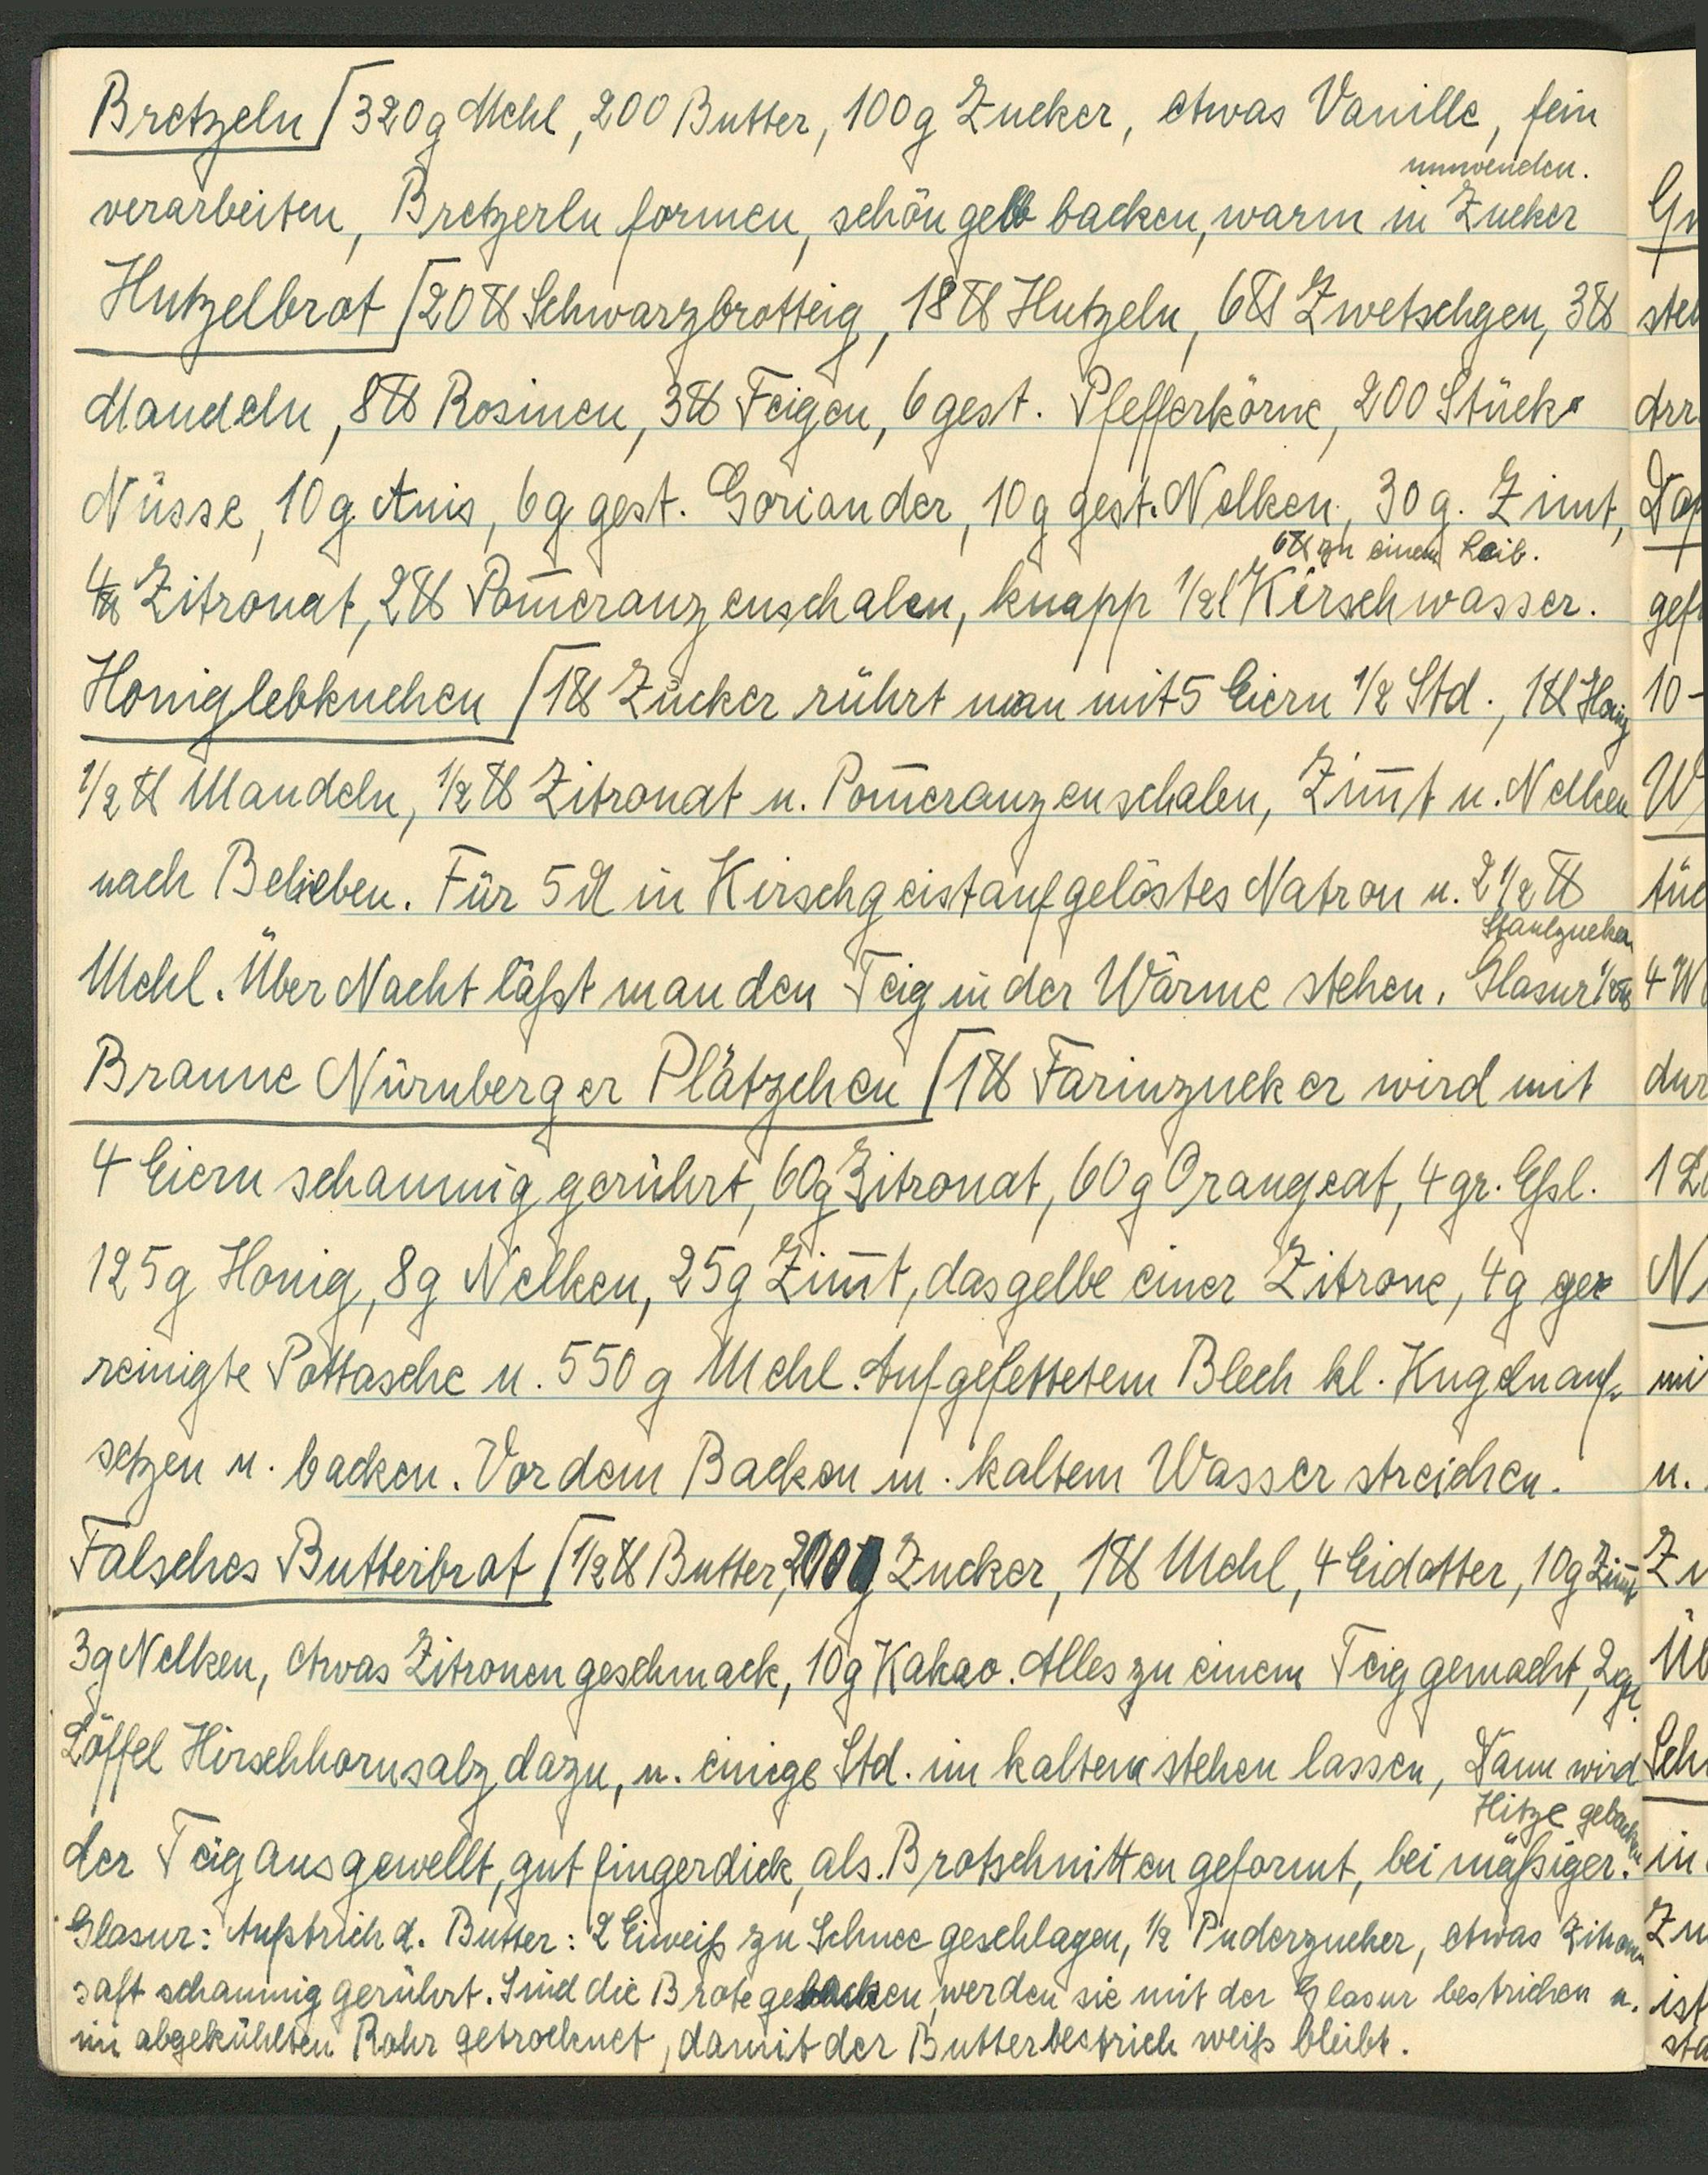 Bretzeln 320g Mehl, 200 Butter, 100g Zucker, etwas Vanille, fein
umwenden.
verarbeiten, Bretzerln formen, schön gelb backen, warm in Zucker
Hutzelbrot 20 ℔ Schwarzbrotteig, 18 ℔ Hutzeln, 6 ℔ Zwetschgen, 3 ℔
Mandeln, 8 ℔ Rosinen, 3 ℔ Feigen, 6 gest. Pfefferkörne, 200 Stück
Nüsse, 10g Anis, 6g gest. Goriander, 10g gest. Nelken, 30 g. Zimt,
6 ℔ zu einem Laib.
Zitronat, 2 ℔ Pom̄eranzenschalen, knapp 1/2 l Kirschwasser.
Honiglebkuchen 1 ℔ Zucker rührt man mit 5 Eiern 1/2 Std., 1 ℔ Honig
1/2 ℔ Mandeln, 1/2 ℔ Zitronat u. Pom̄eranzenschalen, Zim̄t u. Nelken
nach Belieben. Für 5 in Kirschgeist aufgelöstes Natron u. 2 1/2 ℔
Staubzucker
Mehl. Über Nacht läßt man den Teig in der Wärme stehen. Glasur 1/2 ℔
Braune Nürnberger Plätzchen 1 ℔ Farinzucker wird mit
4 Eiern schaumig gerührt, 60g Zitronat, 60g Orangeat, 4 gr. Eßl.
125g Honig, 8g Nelken, 25g Zim̄t, das gelbe einer Zitrone, 4g ge
reinigte Pottasche u. 550g Mehl. Auf gefettetem Blech kl. Kugeln auf-
setzen u. backen. Vor dem Backen m. kaltem Wasser streichen.
Falsches Butterbrot 1/2 ℔ Butter, 200g Zucker, 1 ℔ Mehl, 4 Eidotter, 10g Zim̄t
3g Nelken, etwas Zitronengeschmack, 10g Kakao. Alles zu einem Teig gemacht, 2 gr.
Löffel Hirschhornsalz dazu, u. einige Std. im kaltem stehen lassen, Dann wird
Hitze gebacken
der Teig ausgewellt, gut fingerdick, als Brotschnitten geformt, bei mäßiger.
Glasur: Aufstrich d. Butter: 2 Eiweiß zu Schnee geschlagen, 1/2 Puderzucker, etwas Zitronen
saft schaumig gerührt. Sind die Brote gebacken, werden sie mit der Glasur bestrichen u.
im abgekühlten Rohr getrocknet, damit der Butterbestrich weiß bleibt.